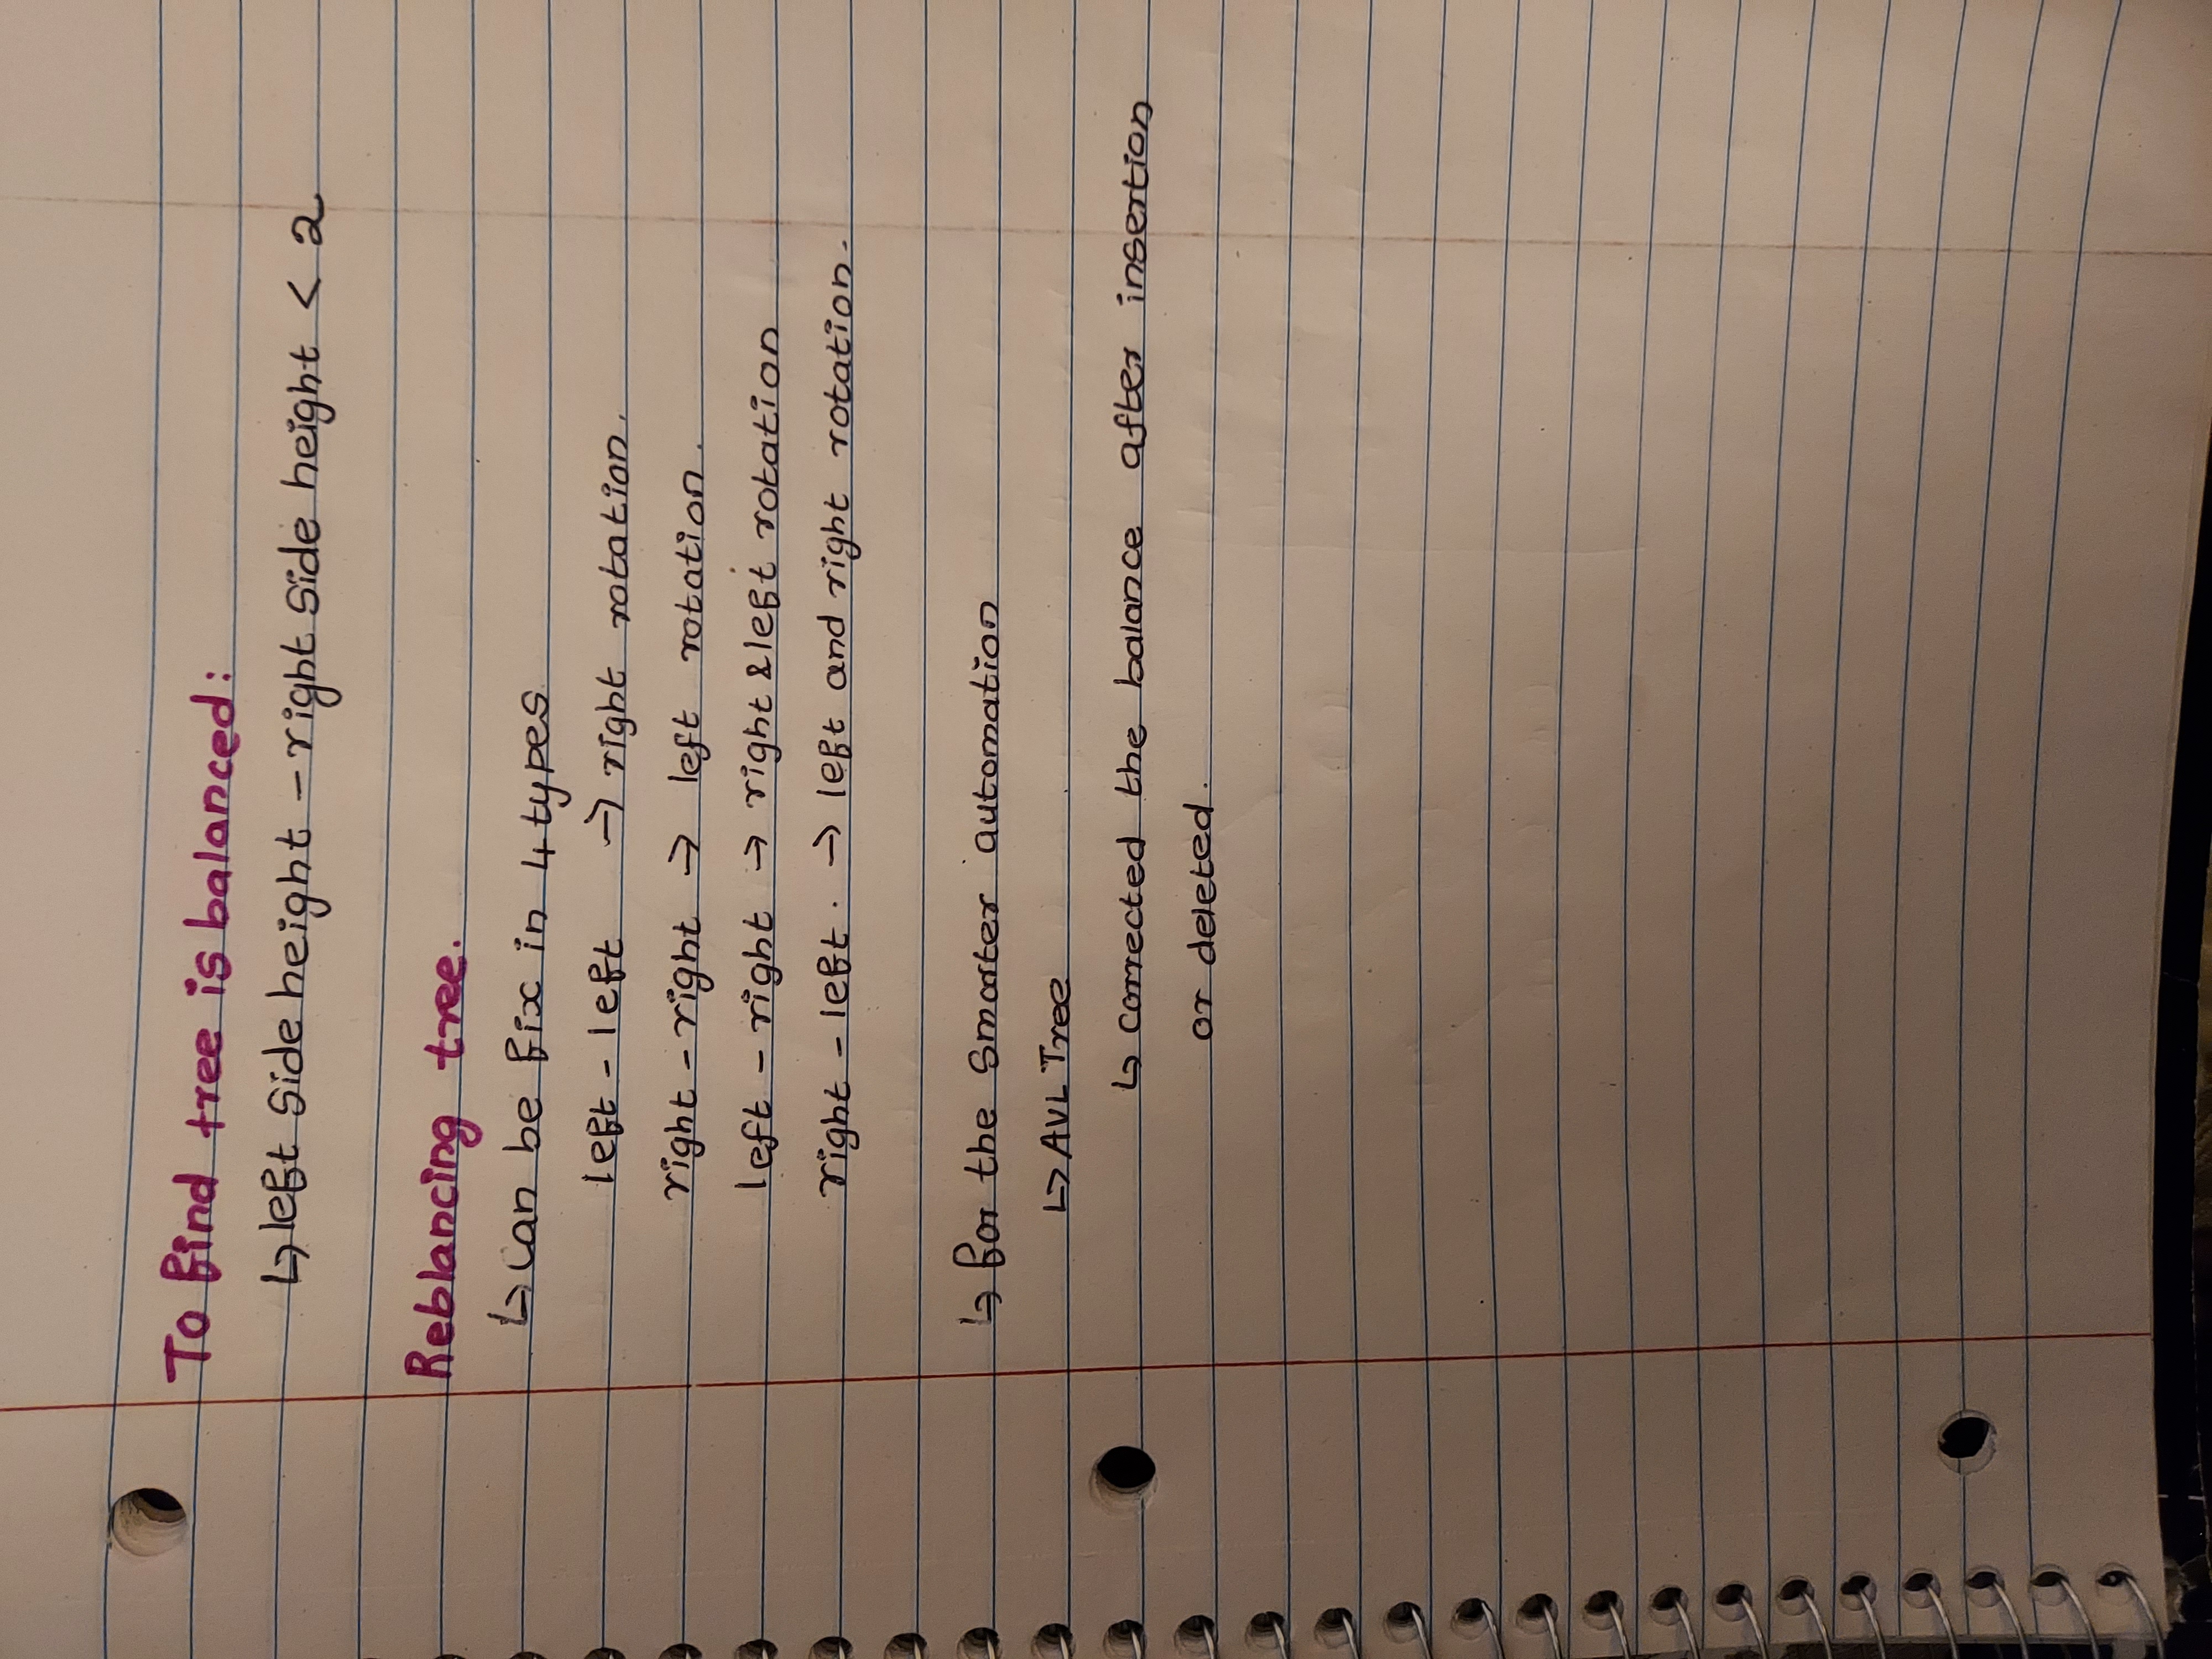 To find tree is balanced:
↳ left side height - right side height < 2
Reblancing tree.
↳ can be fix in 4 types
left - left → right rotation.
right - right → left rotation.
left - right → right & left rotation
right - left. → left and right rotation.
↳ for the smarter automation
↳ AVL Tree
↳ corrected the balance after insertion
or deleted.